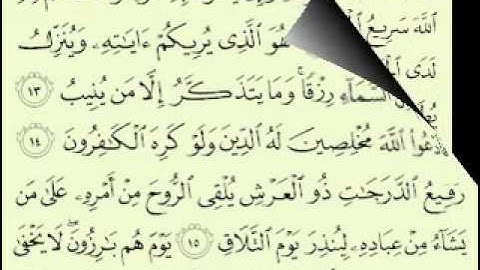 ٱللَّهَ سَرِيعُ
هُوَ ٱلَّذِى يُرِيكُمْ ءَايَـٰتِهِۦ وَيُنَزِّلُ
لَدَى
ٱلسَّمَآءِ رِزْقًا ۚ وَمَا يَتَذَكَّرُ إِلَّا مَن يُنِيبُ ١٣
ٱللَّهَ مُخْلِصِينَ لَهُ ٱلدِّينَ وَلَوْ كَرِهَ ٱلْكَـٰفِرُونَ ١٤
رَفِيعُ ٱلدَّرَجَـٰتِ ذُو ٱلْعَرْشِ يُلْقِى ٱلرُّوحَ مِنْ أَمْرِهِۦ عَلَىٰ مَن
يَشَآءُ مِنْ عِبَادِهِۦ لِيُنذِرَ يَوْمَ ٱلتَّلَاقِ ١٥ يَوْمَ هُم بَـٰرِزُونَ ۖ لَا يَخْفَىٰ